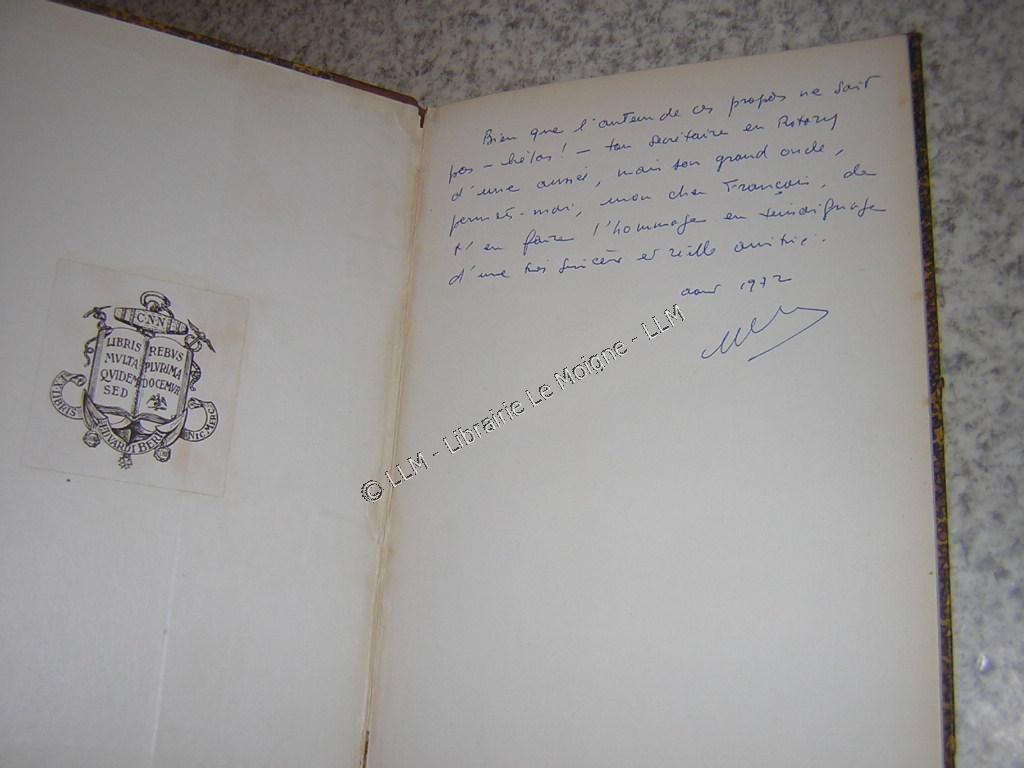 C.N.N
LIBRIS
MVLTA
QVIDEM
SED
REBVS
PLVRIMA
DOCEMVR
EX LIBRIS
Bien que l'auteur de ces propos ne soit
pas - hélas ! - ton secrétaire en Rotary
d'une année, mais son grand oncle,
permets-moi, mon cher François, de
t'en faire l'hommage en témoignage
d'une très sincère et vieille amitié.
août 1972
© LLM - Librairie Le Moigne - LLM